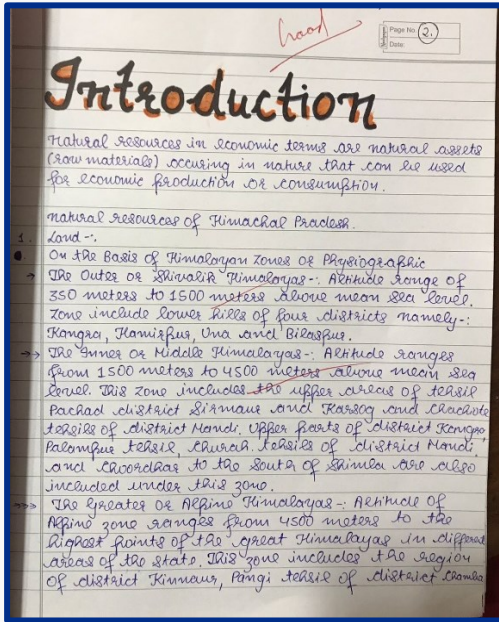 Good
Page No. 2.
Date
Introduction
natural resources in economic terms are natural assets
(raw materials) occuring in nature that can be used
for economic production or consumption.
natural resources of Himachal Pradesh.
1. Land -:
On the Basis of Himalayan Zones or Physiographic
→ The Outer or Shivalik Himalayas-: Altitude range of
350 meters to 1500 meters above mean sea level.
Zone include lower hills of four districts namely-:
Kangra, Hamirpur, Una and Bilaspur.
→→ The Inner or Middle Himalayas-: Altitude ranges
from 1500 meters to 4500 meters above mean sea
level. This zone includes the upper areas of tehsil
Pachad district Sirmaur and Karsog and Chachote
tehsils of district Mandi, Upper parts of district Kangra,
Palampur tehsil, Churah tehsils of district Mandi
and Choordhar to the South of Shimla are also
included under this zone.
→→→ The Greater or Alpine Himalayas-: Altitude of
Alpine zone ranges from 4500 meters to the
highest points of the great Himalayas in different
areas of the state. This zone includes the region
of district Kinnaur, Pangi tehsil of district Chamba